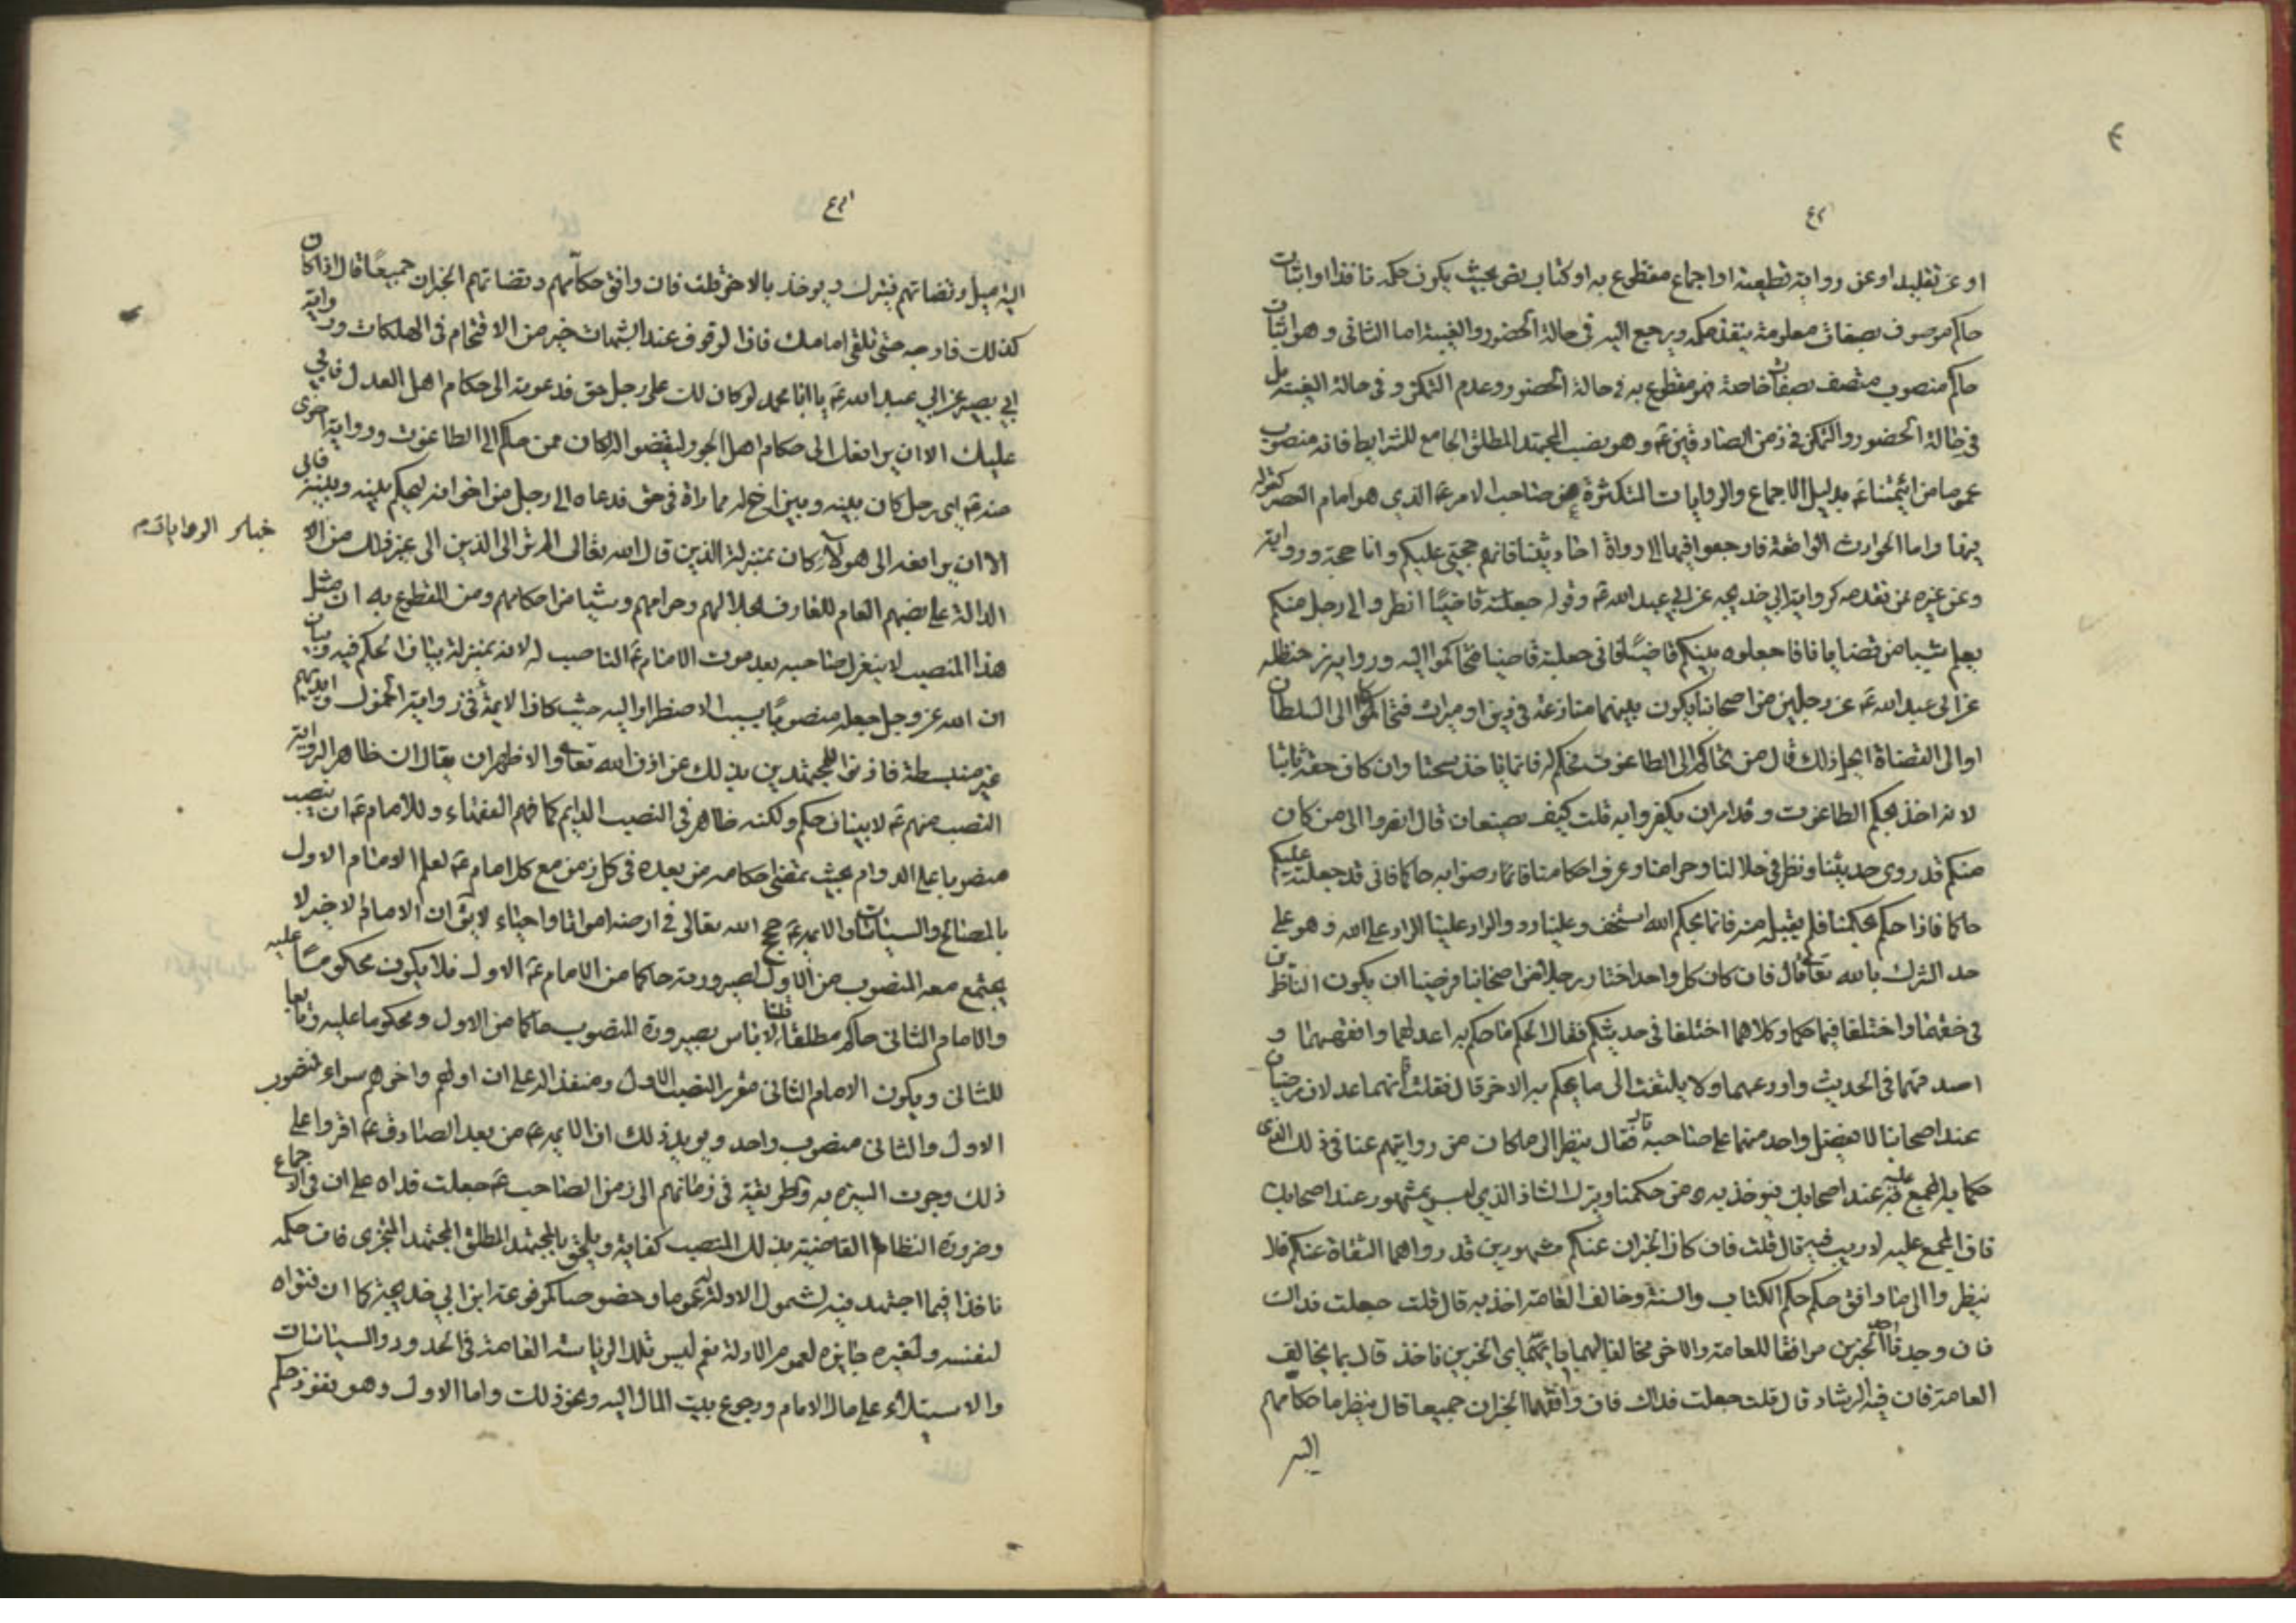 ٤٢
او عن تقليد او عن رواية قطعية او اجماع مقطوع به او كتاب نص بحيث يكون حكمه نافذا او اثبات
حاكم موصوف بصفات معلومة ينفذ حكمه ويرجع اليه في حالة الحضور والغيبة اما الثاني وهو اثبات
حاكم منصوب متصف بصفات خاصة فهو مقطوع به في حالة الحضور وعدم التمكن وفي حالة الغيبة بل
في حالة الحضور والتمكن في زمن الصادقين ع وهو نصب المجتهد المطلق الجامع للشرايط فانه منصوب
عموما من ائمتنا ع بدليل الاجماع والروايات المتكثرة عن صاحب الامر ع الذي هو امام العصر كقوله
فيها واما الحوادث الواقعة فارجعوا فيها الى رواة احاديثنا فانهم حجتي عليكم وانا حجة ورواية
وعن غيره ممن تقدمه كرواية ابي خديجه عن ابي عبد الله ع وقوله جعلته قاضيا انظروا الى رجل منكم
يعلم شيئا من قضايانا فاجعلوه بينكم قاضيا فاني جعلته قاضيا فتحاكموا اليه ورواية بن حنظله
عن ابي عبد الله ع عن رجلين من اصحابنا يكون بينهما منازعة في دين او ميراث فتحاكما الى السلطان
او الى القضاة ايحل ذلك قال من تحاكم الى الطاغوت فحكم له فانما ياخذ سحتا وان كان حقه ثابتا
لانه اخذ بحكم الطاغوت وقد امر ان يكفر وا به قلت كيف يصنعان قال انظروا الى من كان
منكم قد روى حديثنا ونظر في حلالنا وحرامنا وعرف احكامنا فارضوا به حاكما فاني قد جعلته عليكم
حاكما فاذا حكم بحكمنا فلم يقبل منه فانما بحكم الله استخف وعلينا رد والراد علينا الراد على الله وهو على
حد الشرك بالله تعالى قال فان كان كل واحد اختار رجلا من اصحابنا فرضيا ان يكون الناظران
في حقهما واختلفا فيما حكما وكلاهما اختلفا في حديثكم فقال الحكم ما حكم به اعدلهما وافقههما و
اصدقهما في الحديث واورعهما ولا يلتفت الى ما يحكم به الاخر قال فقلت فانهما عدلان مرضيان
عند اصحابنا لا يفضل واحد منهما على صاحبه قال فقال ينظر الى ما كان من روايتهم عنا في ذلك الذي
حكما به المجمع عليه عند اصحابك فيوخذ به من حكمنا ويترك الشاذ الذي ليس بمشهور عند اصحابك
فان المجمع عليه لا ريب فيه قال قلت فان كان الخبران عنكم مشهورين قد رواهما الثقاة عنكم قال
ينظر والى ما وافق حكمه حكم الكتاب والسنة وخالف العامة اخذ به قال قلت جعلت فداك
فان وجدنا احد الخبرين موافقا للعامة والاخر مخالفا لهم باي الخبرين ناخذ قال بما يخالف
العامة فان فيه الرشاد قال قلت جعلت فداك فان وافقهما الخبران جميعا قال ينظر ما حكامهم
اليه
اليه اميل وقضاتهم فيترك ويوخذ بالاخر قلت فان وافق حكامهم وقضاتهم الخبران جميعا قال اذا كان
كذلك فارجه حتى تلقى امامك فان الوقوف عند الشبهات خير من الاقتحام في الهلكات ورواية
ابي بصير عن ابي عبد الله ع يا ابا محمد لو كان لك على رجل حق فدعوته الى حكام اهل العدل فابي
عليك الا ان يرافعك الى حكام اهل الجور ليقضوا له كان ممن حاكم الى الطاغوت ورواية اخرى
عنه ع اي رجل كان بينه وبين اخ له مماراة في حق فدعاه الى رجل من اخوانه ليحكم بينه وبينه فابى
الا ان يرافعه الى هولاء كان بمنزلة الذين قال الله تعالى الم تر الى الذين الى غير ذلك من الا
خبار الروايات م
الدالة على نصبهم العام للعارف بحلالهم وحرامهم وشيئا من احكامهم ومن المقطوع به ان مثل
هذا المنصب لا ينعزل صاحبه بعد موت الامام ع الناصب له لانه بمنزلة بيان الحكم فيه وبيان
ان الله عز وجل جعله منصوبا بسبب الاضطرار اليه حيث كان الايمة في زواية الخمول وايديهم
غير منبسطة فاذنوا للمجتهدين بذلك عن اذن الله تعالى والاظهر ان يقال ان ظاهر الرواية
النصب منهم ع لا بيان حكم ولكنه ظاهر في النصب الدايم كما فهم الفقهاء وللامام ع ان ينصب
منصوبا على الدوام بحيث تمضى احكامه من بعده في كل زمن مع كل امام ع لعلم الامام الاول
بالمصالح والسياسات والايمة ع حجج الله تعالى في ارضه امواتا واحياء لا يق ان الامام الاخير لا
يجتمع معه المنصوب من الاول لصيرورته حاكما من الامام ع الاول فلا يكون محكوما عليه
والامام الثاني حاكم مطلقا قلنا لا باس بصيرورة المنصوب حاكما من الاول ومحكوما عليه وتابعا
للثاني ويكون الامام الثاني مقررا لنصب الاول ومنفذا له على ان اولهم واخرهم سواء فمنصوب
الاول والثاني منصوب واحد ويويد ذلك ان الايمة ع من بعد الصادق ع اقروا على
ذلك وجرت السيره به وطريقته في زمانهم الى زمن الصاحب ع جعلت فداه على ان في الاجماع
وضرورة النظام القاضية بذلك المنصب كفاية ويلحق بالمجتهد المطلق المجتهد المتجزى فان حكمه
نافذ فيما اجتهد فيه لشمول الادلة له عموما وخصوصا كمرفوعة ابن ابي خديجة كما ان فتواه
لنفسه ولغيره جايزه لعموم الادلة نعم ليس تلك الرياسة العامة في الحدود والسياسات
والاستيلاء على مال الامام ورجوع بيت المال اليه ونحو ذلك واما الاول وهو نفوذ حكم